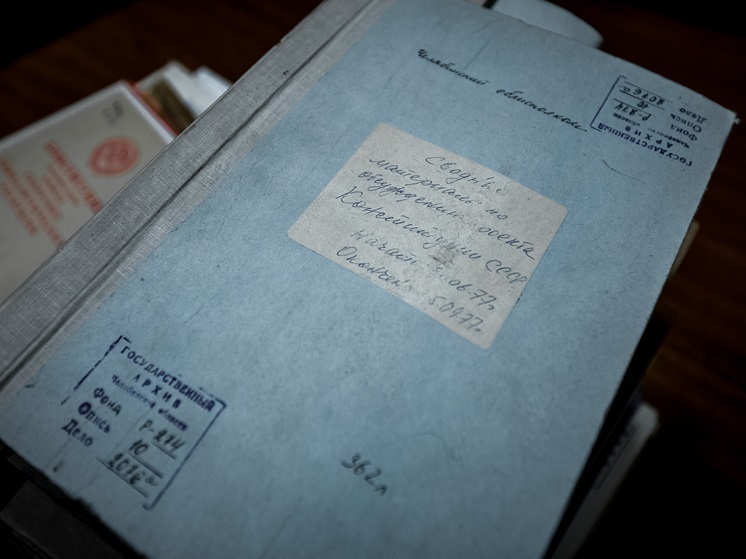 Челябинский облисполком
ГОСУДАРСТВЕННЫЙ
АРХИВ
Челябинской области
Фонд Р-274
Опись 10
Дело 2076а
Сводные
материалы по
обсуждению проекта
Конституции СССР
Начат: 06.77г.
Окончен: 5.09.77г.
ГОСУДАРСТВЕННЫЙ
АРХИВ
Челябинской области
Фонд Р-274
Опись 10
Дело 2076а
362л